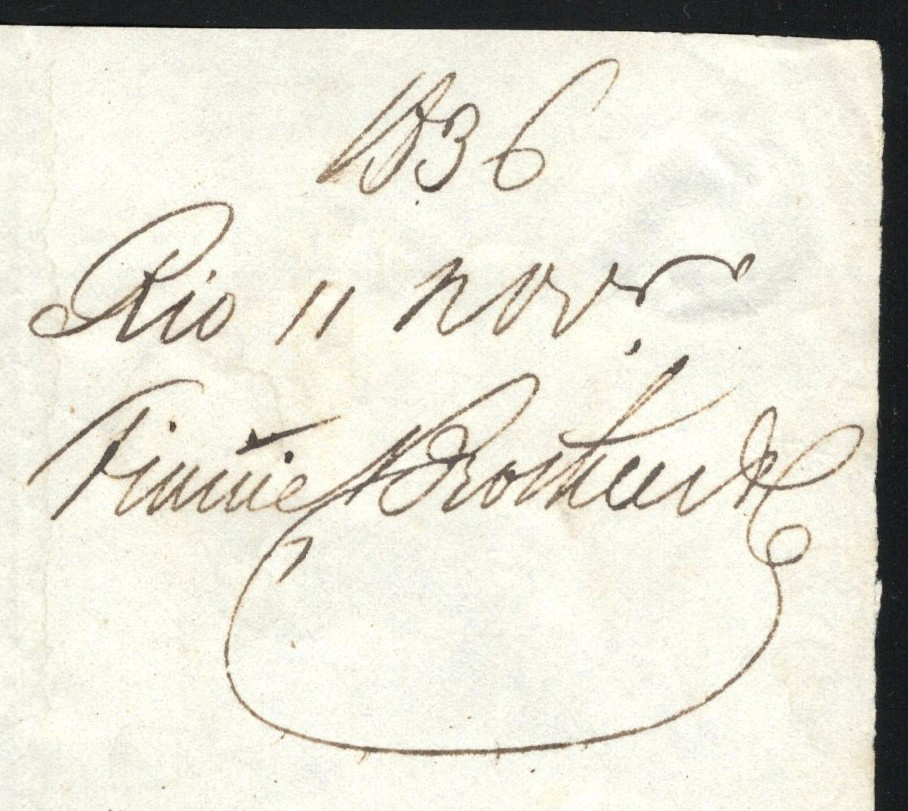 1836
Rio 11 Novr
Finnie Brothers &